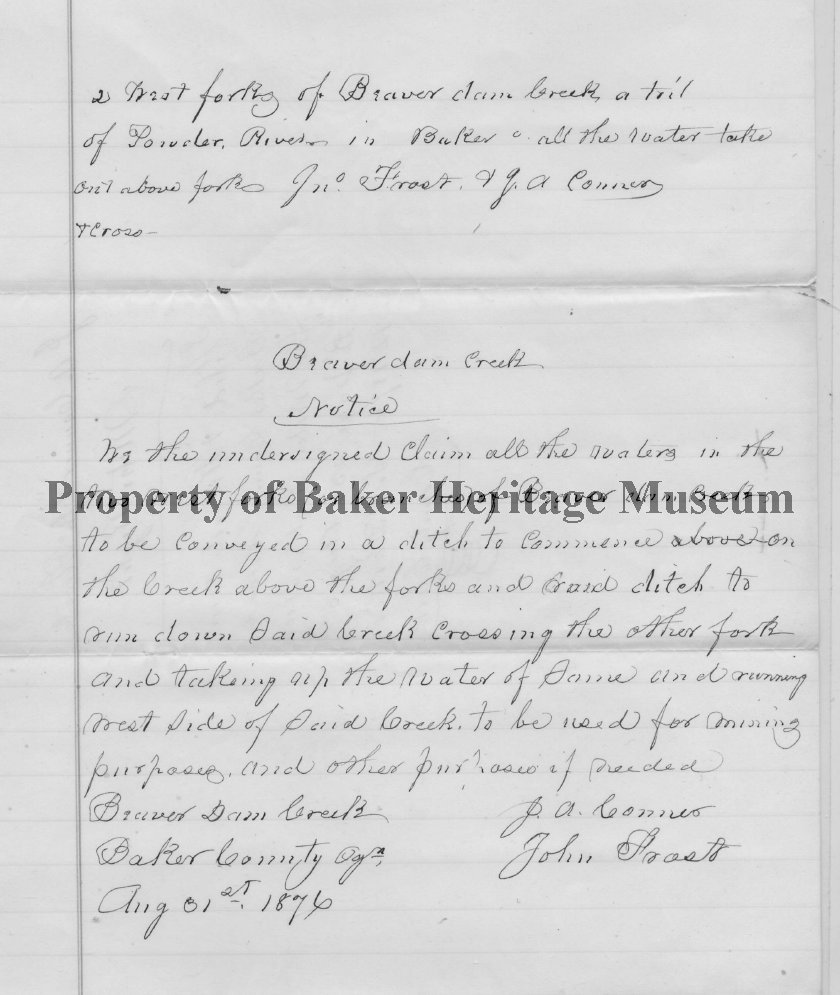 2 West forks of Beaver dam Creek, a trib
of Powder River in Baker Co. all the water take
out above forks Jno. Frost. & J. A Conner
& Cross -
Beaver dam Creek
Notice
We the undersigned Claim all the waters in the
two west forks or branches of Beaver dam Creek
Property of Baker Heritage Museum
to be Conveyed in a ditch to Commence above on
the Creek above the forks and Said ditch to
run down Said Creek Crossing the other fork
and taking up the Water of Same and running
west Side of Said Creek. to be used for mining
purposes. and other purposes if needed
Beaver Dam Creek J. A. Conner
Baker County Ogn. John Frost
Aug 31st. 1876